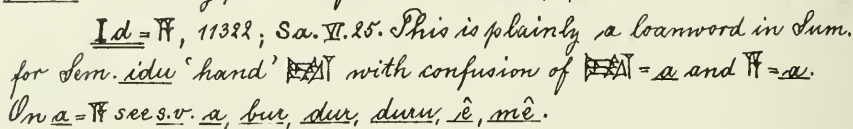 Id = 𒀀, 11322; Sa. VI. 25. This is plainly a loanword in Sum.
for Sem. idu 'hand' 𒀉 with confusion of 𒀉 = a and 𒀀 = a.
On a = 𒀀 see s.v. a, bur, dur, duru, ê, mê.